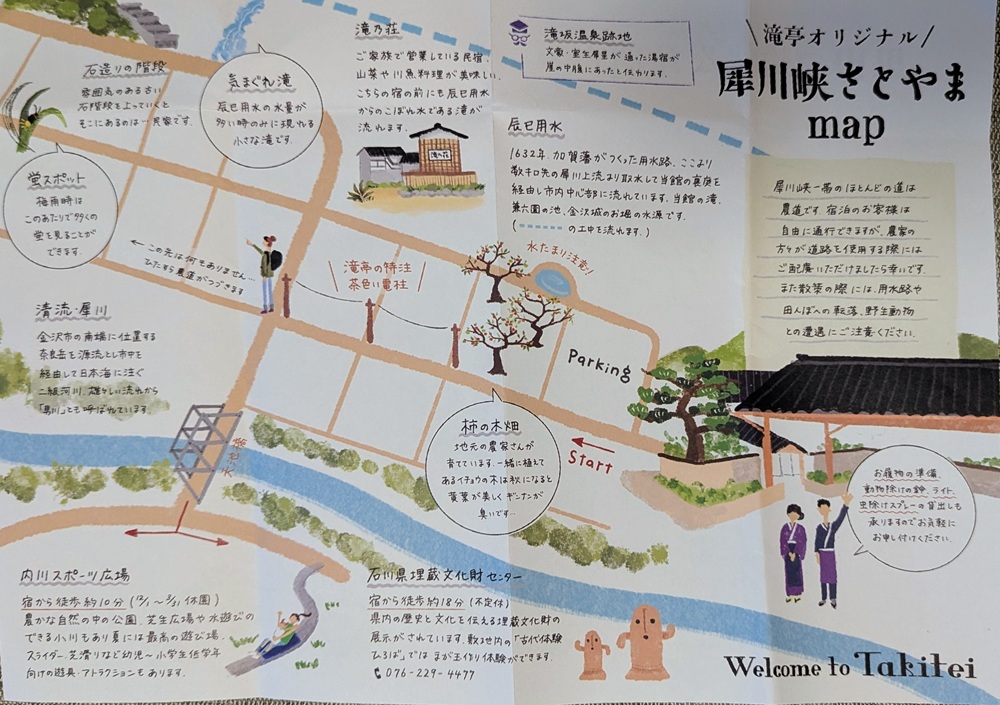 滝亭オリジナル
犀川峡さとやま
map
犀川峡一帯のほとんどの道は
農道です。宿泊のお客様は
自由に通行できますが、農家の
方々が道路を使用する際には
ご配慮いただけましたら幸いです。
また散策の際には、用水路や
田んぼへの転落、野生動物
との遭遇にご注意ください。
滝坂温泉跡地
文豪・室生犀星が通った湯宿が
崖の中腹にあったと伝わります。
滝乃荘
ご家族で営業している民宿。
山菜や川魚料理が美味しい。
こちらの宿の前にも辰巳用水
からのこぼれ水である滝が
流れます。
滝乃荘
石造りの階段
雰囲気のある古い
石階段を上っていくと
そこにあるのは…民家です。
気まぐれ滝
辰巳用水の水量が
多い時のみに現れる
小さな滝です。
辰巳用水
1632年、加賀藩がつくった用水路。ここより
数キロ先の犀川上流より取水して当館の裏庭を
経由し市内中心部に流れています。当館の滝、
兼六園の池、金沢城のお堀の水源です。
(の工中を流れます。)
蛍スポット
梅雨時は
このあたりで多くの
蛍を見ることが
できます。
←この先は何もありません…
ひたすら農道がつづきます
滝亭の特注
茶色い電柱
水たまり注意!
Parking
清流・犀川
金沢市の南端に位置する
奈良岳を源流とし市中を
経由して日本海に注ぐ
二級河川。雄々しい流れから
「男川」とも呼ばれています。
柿の木畑
地元の農家さんが
育てています。一緒に植えて
あるイチョウの木は秋になると
黄葉が美しくギンナンが
臭いです…
Start
お履物の準備、
動物除けの鈴、ライト、
虫除けスプレーの貸出しも
承りますのでお気軽に
お申し付けください。
内川スポーツ広場
宿から徒歩約10分(12/1〜3/31休園)
豊かな自然の中の公園。芝生広場や水遊びの
できる小川もあり夏には最高の遊び場。
スライダー、芝滑りなど幼児〜小学生低学年
向けの遊具・アトラクションもあります。
石川県埋蔵文化財センター
宿から徒歩約18分(不定休)
県内の歴史と文化を伝える埋蔵文化財の
展示がされています。敷地内の「古代体験
ひろば」ではまが玉作り体験ができます。
076-229-4477
Welcome to Takitei